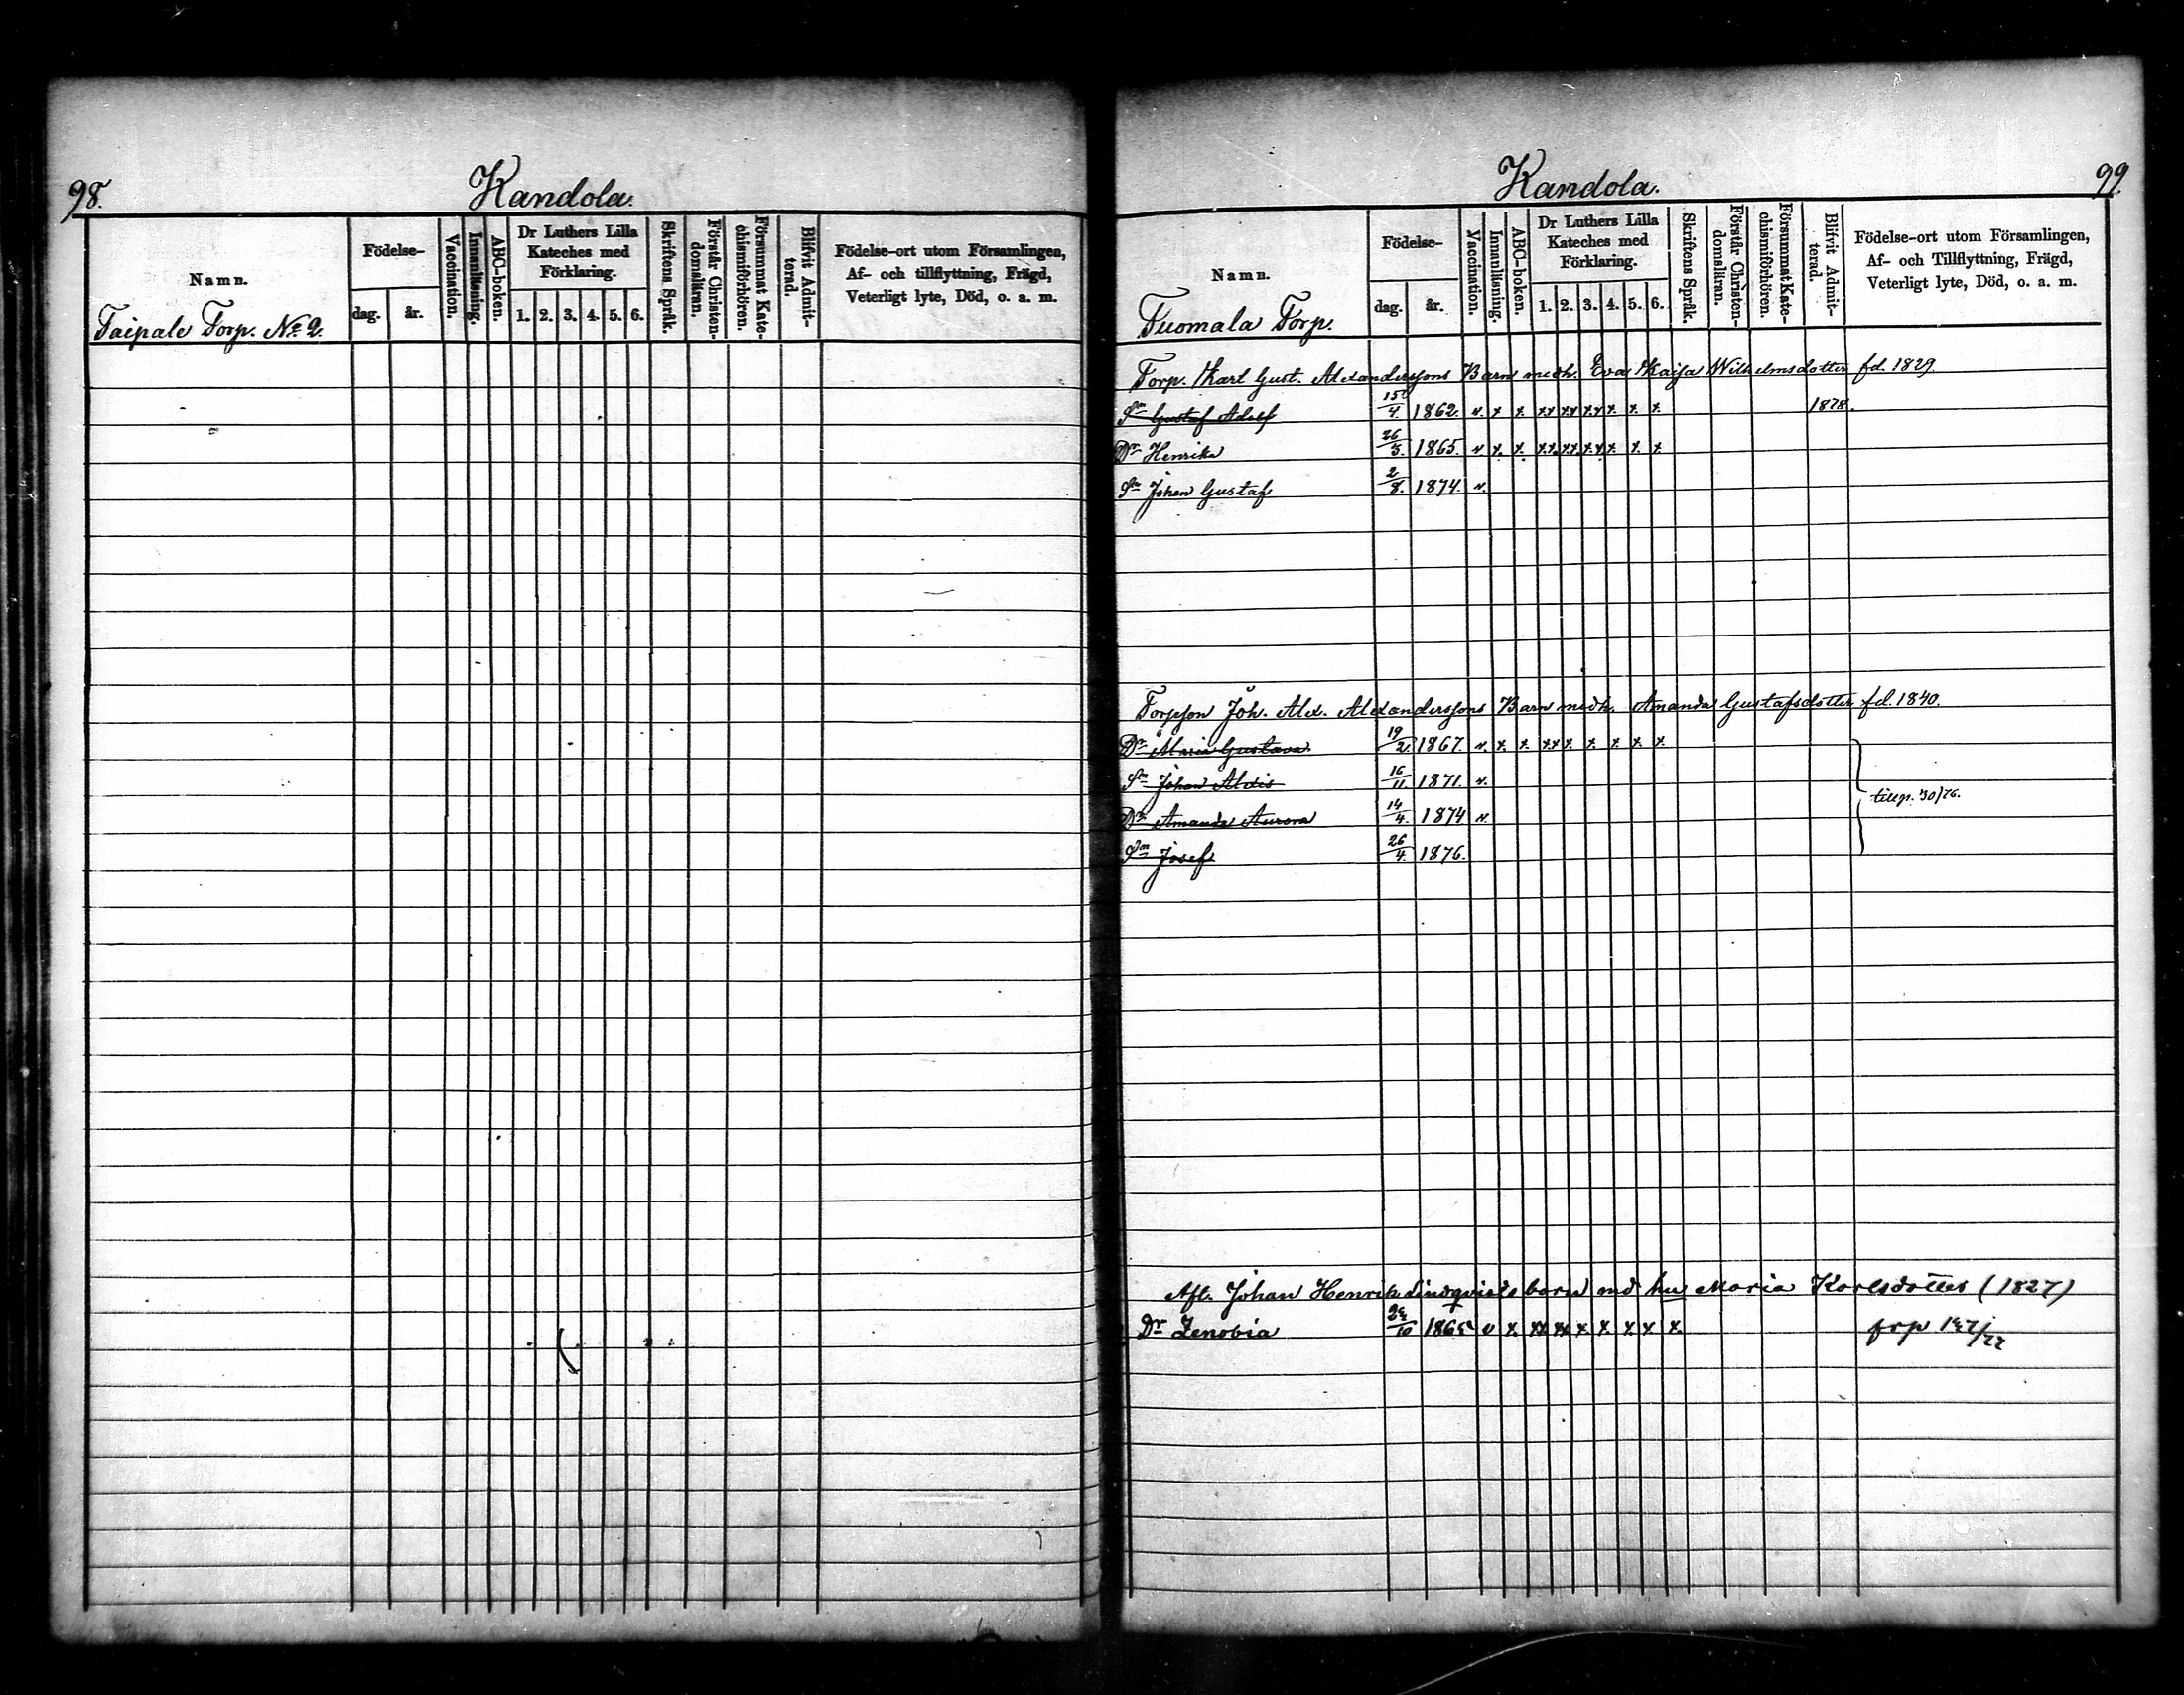 98.
Kandola.
Namn.
Födelse-
dag.
år.
Vaccination.
Innanläsning.
ABC-boken.
Dr Luthers Lilla
Kateches med
Förklaring.
1. 2. 3. 4. 5. 6.
Skriftens Språk.
Förstår Christen-
domsläran.
Försummat Kate-
chismiförhören.
Blifvit Admit-
terad.
Födelse-ort utom Församlingen,
Af- och tillflyttning, Frägd,
Veterligt lyte, Död, o. a. m.
Taipale Torp. No 2.
99.
Kandola.
Namn.
Födelse-
dag.
år.
Vaccination.
Innanläsning.
ABC-boken.
Dr Luthers Lilla
Kateches med
Förklaring.
1. 2. 3. 4. 5. 6.
Skriftens Språk.
Förstår Christen-
domsläran.
Försummat Kate-
chismiförhören.
Blifvit Admit-
terad.
Födelse-ort utom Församlingen,
Af- och Tillflyttning, Frägd,
Veterligt lyte, Död, o. a. m.
Tuomala Torp.
Torp. Karl Gust. Alexanderssons Barn medh. Eva Kaisa Wilhelmsdotter fd. 1829.
Sn Gustaf Adolf 15/4 1862. v. x x. xx xx xx x. x. x. 1878.
Dr Henrika 26/3. 1865. v x. x. xx xx xx x. x. x
Sn Johan Gustaf 2/8. 1874. v.
Torpson Joh. Alex. Alexanderssons Barn medh. Amanda Gustafsdotter fd. 1840.
Dr Maria Gustava 19/2. 1867. v. x. x. xx x. x. x. x. x.
Sn Johan Alexis 16/11. 1871. v.
Dr Amanda Aurora 14/4. 1874 v.
tillsp. 30/76.
Sn Josef 26/4. 1876.
Aft. Johan Henrik Lindqvists barn md hu Maria Karlsdotter (1827)
Dr Zenobia 1865 v x. xx xx x x. x. x. x. frp